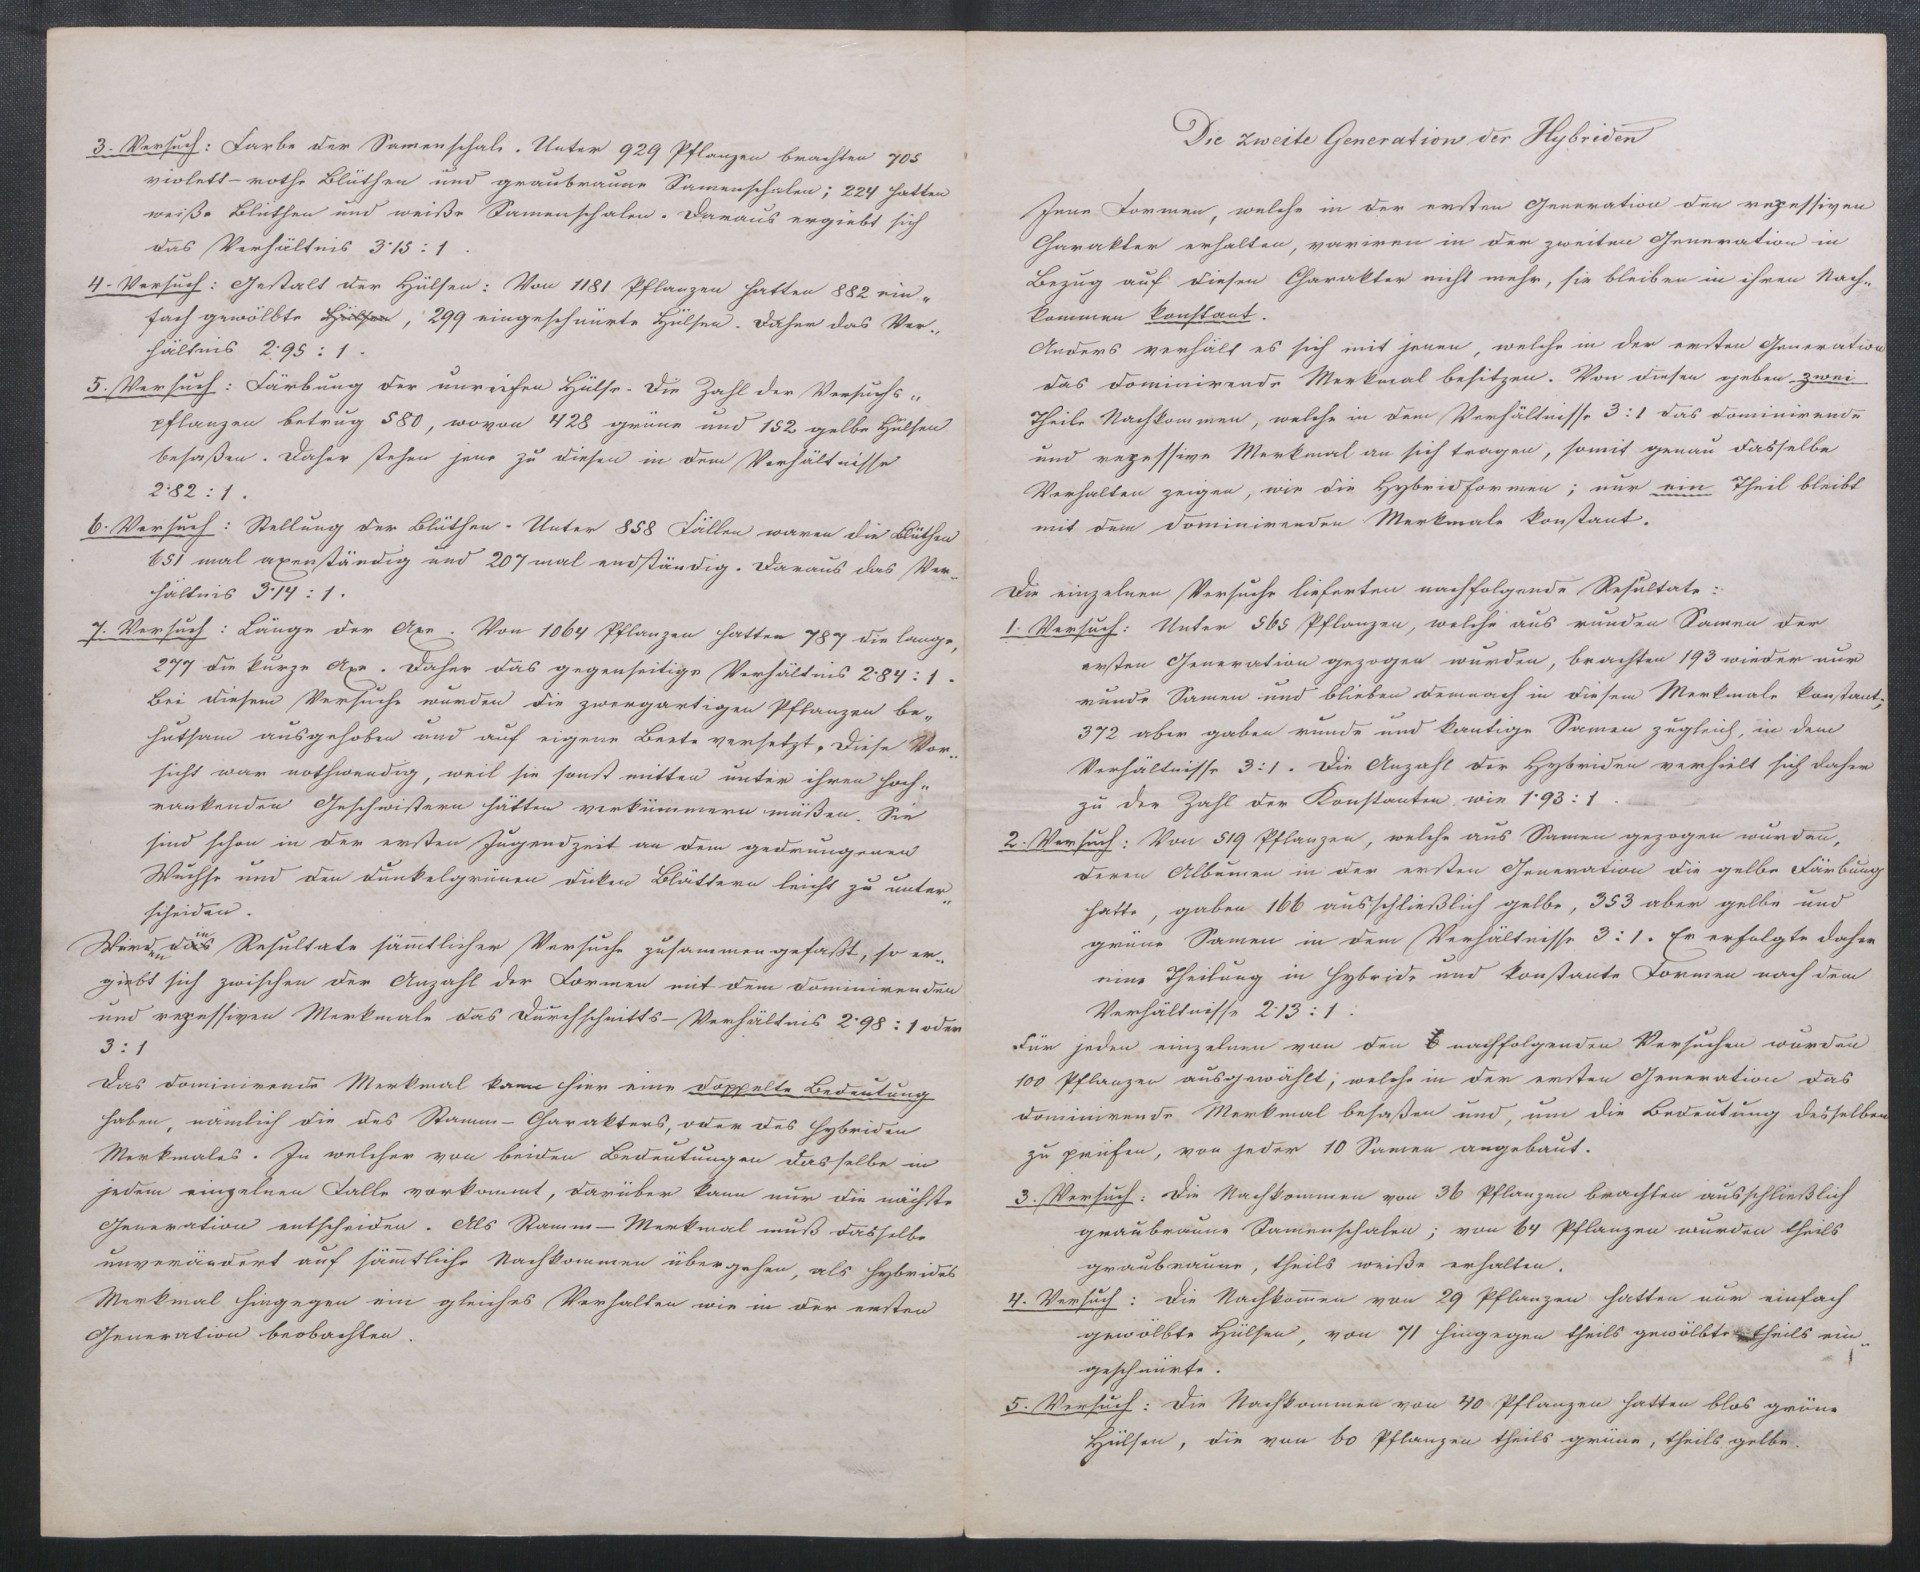 3. Versuch: Farbe der Samenschale. Unter 929 Pflanzen brachten 705
violett-rothe Blüthen und graubraune Samenschalen; 224 hatten
weiße Blüthen und weiße Samenschalen. Daraus ergiebt sich
das Verhältnis 3·15:1.
4. Versuch: Gestalt der Hülsen: Von 1181 Pflanzen hatten 882 ein„
fach gewölbte Hülsen, 299 eingeschnürte Hülsen. Daher das Ver„
hältnis 2·95:1.
5. Versuch: Färbung der unreifen Hülse. Die Zahl der Versuchs„
pflanzen betrug 580, wovon 428 grüne und 152 gelbe Hülsen
besaßen. Daher stehen jene zu diesen in dem Verhältnisse
2·82:1.
6. Versuch: Stellung der Blüthen. Unter 858 Fällen waren die Blüthen
651 mal axenständig und 207 mal endständig. Daraus das Ver„
hältnis 3·14:1.
7. Versuch: Länge der Axe. Von 1064 Pflanzen hatten 787 die lange,
277 die kurze Axe. Daher das gegenseitige Verhältnis 2·84:1.
Bei diesem Versuche wurden die zwergartigen Pflanzen be„
hutsam ausgehoben und auf eigene Beete versetzt. Diese Vor„
sicht war nothwendig, weil sie sonst mitten unter ihren hoch„
rankenden Geschwistern hätten verkümmern müßen. Sie
sind schon in der ersten Jugendzeit an dem gedrungenen
Wuchse und den dunkelgrünen dicken Blättern leicht zu unter„
scheiden.
Werden die Resultate sämmtlicher Versuche zusammengefaßt, so er„
giebt sich zwischen der Anzahl der Formen mit dem dominirenden
und rezessiven Merkmale das Durchschnitts-Verhältnis 2·98:1 oder
3:1
Das dominirende Merkmal kann hier eine doppelte Bedeutung
haben, nämlich die des Stamm-Charakters, oder des hybriden
Merkmales. In welcher von beiden Bedeutungen dasselbe in
jedem einzelnen Falle vorkommt, darüber kann nur die nächste
Generation entscheiden. Als Stamm-Merkmal muß dasselbe
unverändert auf sämtliche Nachkommen übergehen, als hybrides
Merkmal hingegen ein gleiches Verhalten wie in der ersten
Generation beobachten.
Die zweite Generation der Hybriden
Jene Formen, welche in der ersten Generation den rezessiven
Charakter erhalten, variren in der zweiten Generation in
Bezug auf diesen Charakter nicht mehr, sie bleiben in ihren Nach„
kommen konstant.
Anders verhält es sich mit jenen, welche in der ersten Generation
das dominirende Merkmal besitzen. Von diesen geben zwei
Theile Nachkommen, welche in dem Verhältnisse 3:1 das dominirende
und rezessive Merkmal an sich tragen, somit genau dasselbe
Verhalten zeigen, wie die Hybridformen; nur ein Theil bleibt
mit dem dominirenden Merkmale konstant.
Die einzelnen Versuche lieferten nachfolgende Resultate:
1. Versuch: Unter 565 Pflanzen, welche aus runden Samen der
ersten Generation gezogen wurden, brachten 193 wieder nur
runde Samen und blieben demnach in diesem Merkmale konstant;
372 aber gaben runde und kantige Samen zugleich, in dem
Verhältnisse 3:1. Die Anzahl der Hybriden verhielt sich daher
zu der Zahl der Konstanten wie 1·93:1.
2. Versuch: Von 519 Pflanzen, welche aus Samen gezogen wurden,
deren Albumen in der ersten Generation die gelbe Färbung
hatte, gaben 166 ausschließlich gelbe, 353 aber gelbe und
grüne Samen in dem Verhältnisse 3:1. Er erfolgte daher
eine Theilung in hybride und konstante Formen nach dem
Verhältnisse 2·13:1.
Für jeden einzelnen von den nachfolgenden Versuchen wurden
100 Pflanzen ausgewählt, welche in der ersten Generation das
dominirende Merkmal besaßen und, um die Bedeutung desselben
zu prüfen, von jeder 10 Samen angebaut.
3. Versuch: Die Nachkommen von 36 Pflanzen brachten ausschließlich
graubraune Samenschalen; von 64 Pflanzen wurden theils
graubraune, theils weiße erhalten.
4. Versuch: Die Nachkommen von 29 Pflanzen hatten nur einfach
gewölbte Hülsen, von 71 hingegen theils gewölbte theils ein„
geschnürte.
5. Versuch: Die Nachkommen von 40 Pflanzen hatten blos grüne
Hülsen, die von 60 Pflanzen theils grüne, theils gelbe.